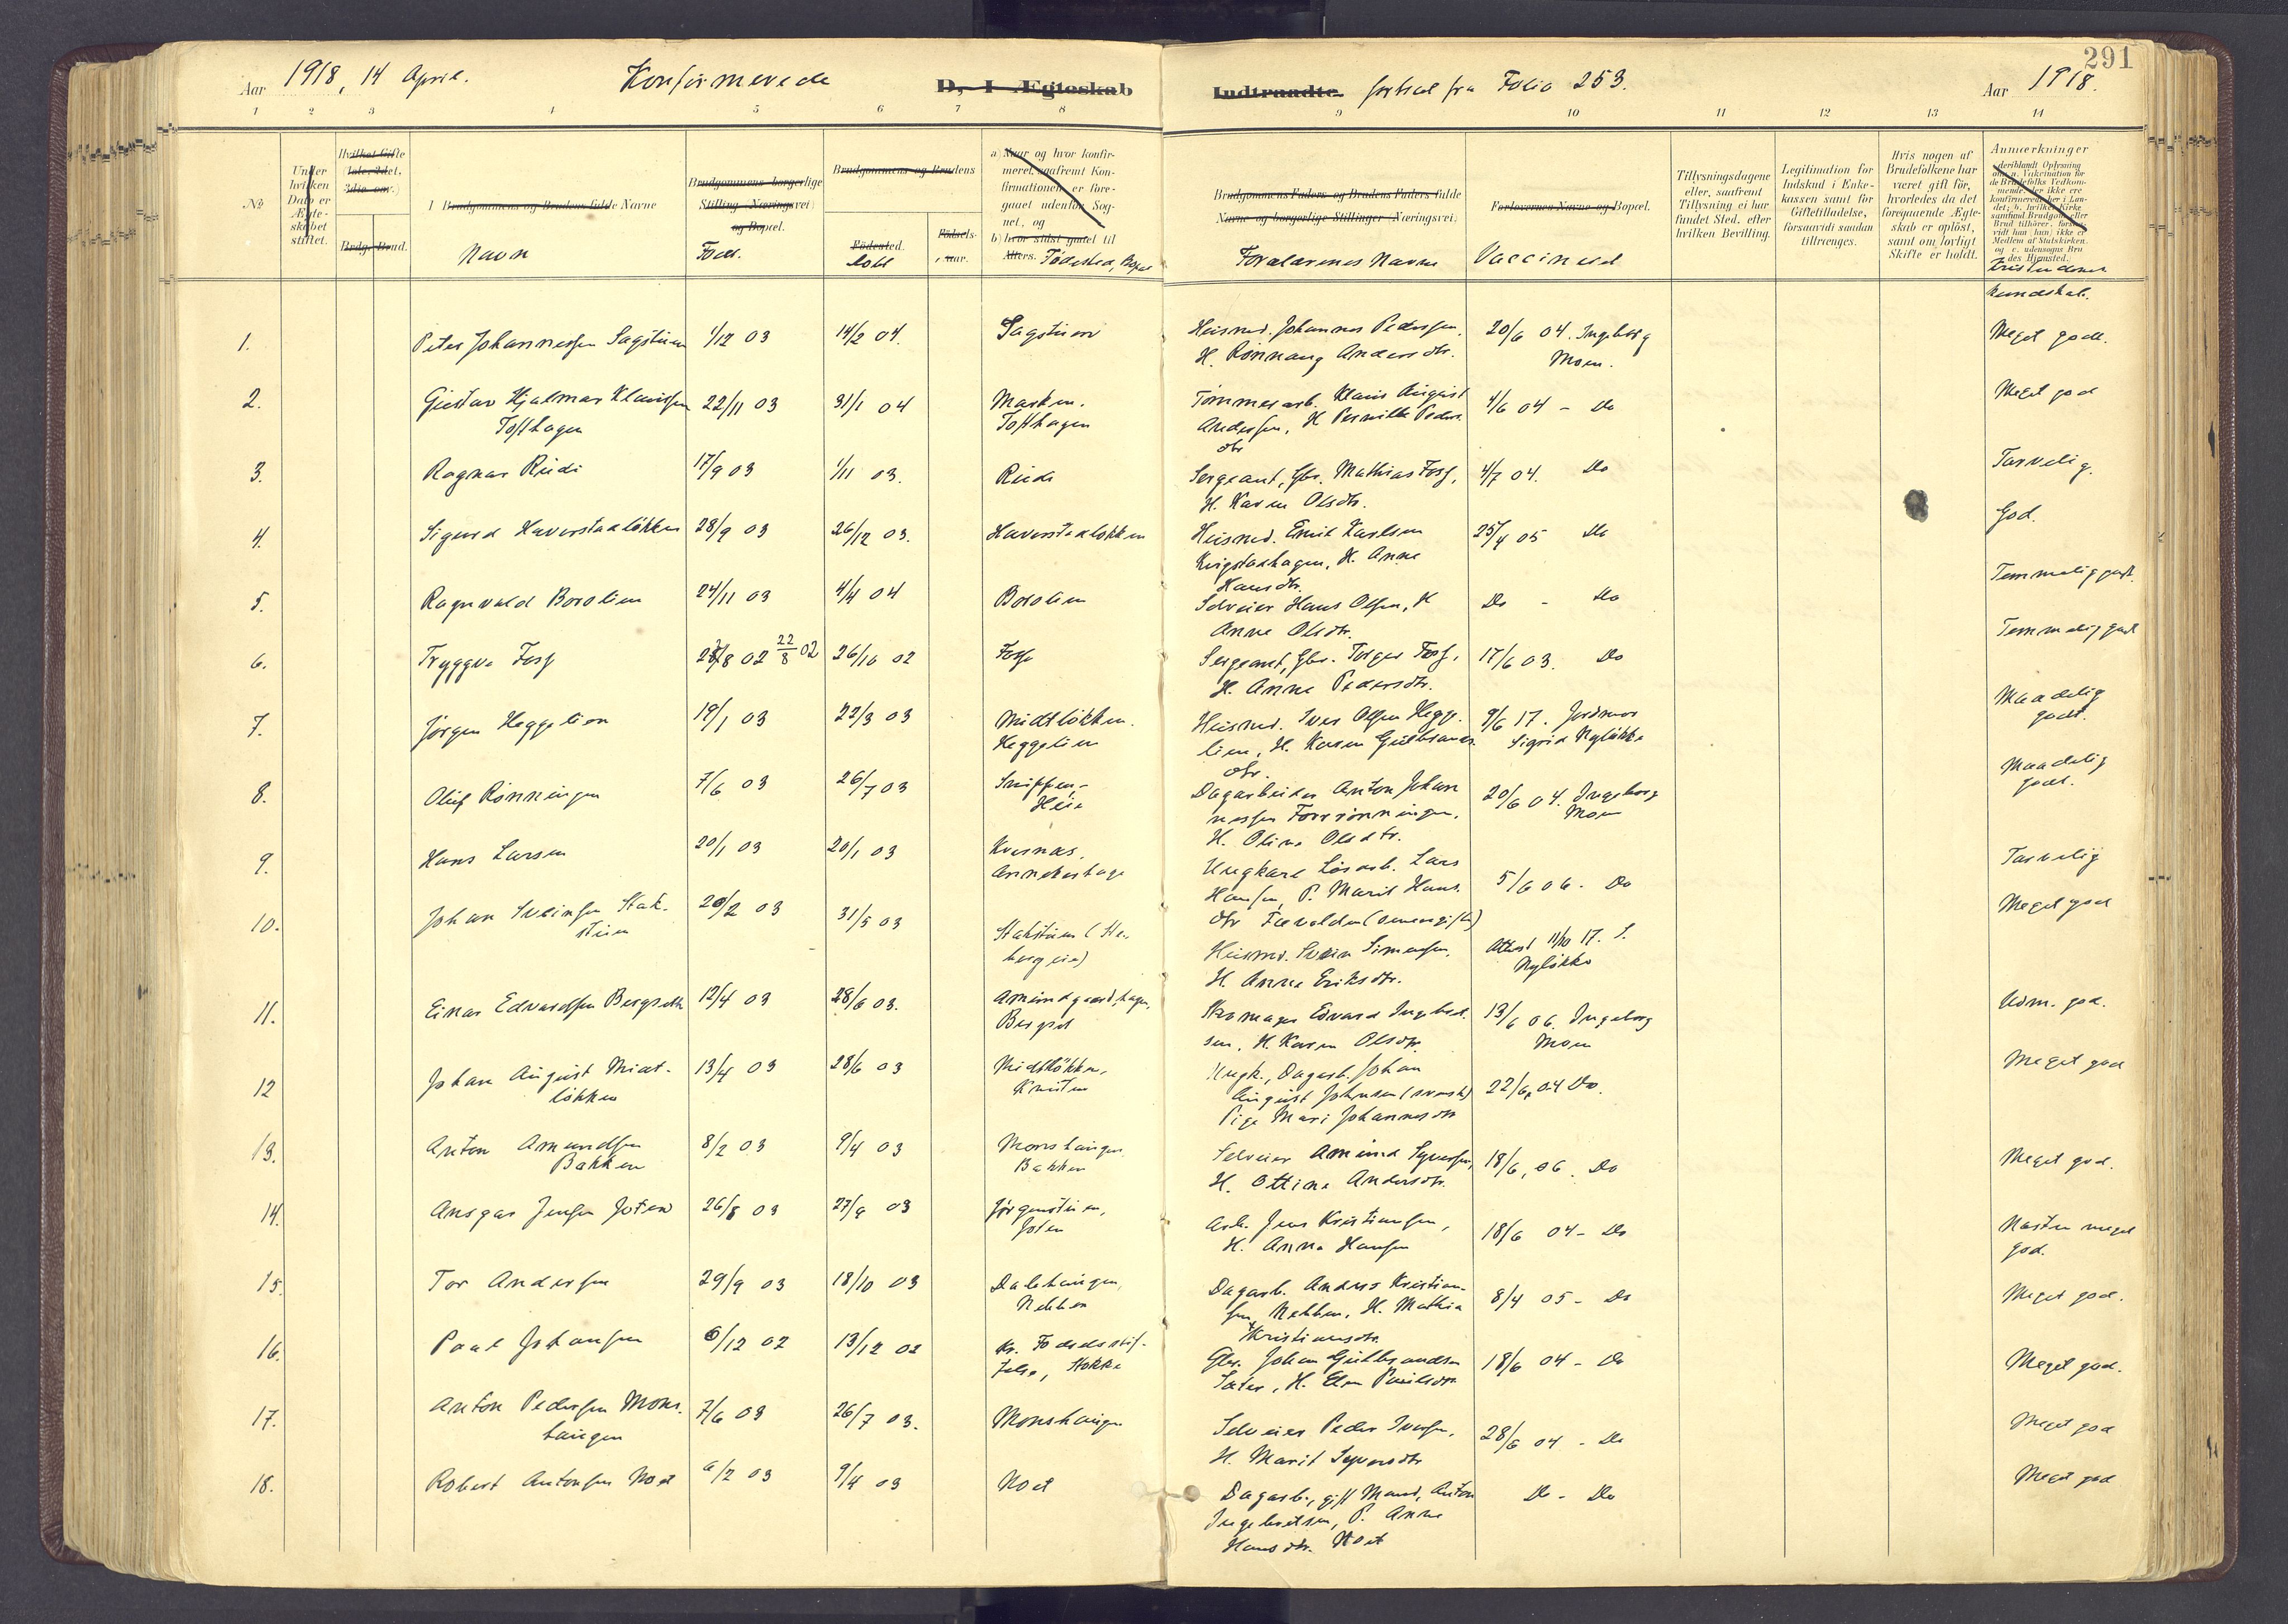 291
Aar 1918, 14 April. Konfirmerede D, I Ægteskab Indtraadte. fortsat fra Folio 253. Aar 1918.
1 2 3 4 5 6 7 8 9 10 11 12 13 14
No
Under hvilken Dato er Ægteskabet stiftet.
Hvilket Gifte
Brdg. Brud.
1 Brudgommens og Brudens fulde Navne
Navn
Brudgommens borgerlige Stilling (Næringsvei) og Bopæl.
Född.
Brudgommens og Brudens
Födested.
Döbt
Födsels-aar.
a) Naar og hvor konfirmeret, saafremt Konfirmationen er foregaaet udenfor Sognet, og
b) hvor sidst gaaet til Alters. Födested, Bopæl
Brudgommens Faders og Brudens Faders fulde Navne og borgerlige Stillinger (Næringsvei)
Forældrenes Navne
Forlovernes Navne og Bopæl.
Vaccinerd
Tillysningsdagene eller, saafremt Tillysning ei har fundet Sted, efter hvilken Bevilling.
Legitimation for Indskud i Enkekassen samt for Giftetilladelse, forsaavidt saadan tiltrænges.
Hvis nogen af Brudefolkene har været gift för, hvorledes da det foregaaende Ægteskab er oplöst, samt om lovligt Skifte er holdt.
Anmerkninger
Kristendoms
kundskab.
1. Peter Johannessen Sagstuen 1/12 03 14/2 04. Sagstuen Husmd. Johannes Pedersen, 20/6 04. Ingeborg Meget godt.
H. Rönnaug Andersdtr. Moen.
2. Gustav Hjalmar Klausen 22/11 03 31/1 04 Marken. Tömmerarb. Klaus August 4/6 04 - Do Meget god
Tofthagen Tofthagen Andersen, H Pernille Peders
dtr
3. Ragnar Rudi 17/9 03 1/11 03. Rudi Sergeant, Gbr. Mathias Foss, 4/7 04. Do Tarvelig.
H. Karen Olsdtr.
4. Sigurd Haverstadlökken 28/9 03 26/12 03. Haverstadlökken Husmd. Emil Karlsen 25/4 05 Do God.
H. Anne
Hansdtr.
5. Ragnvald Borolien 24/11 03 4/4 04 Borolien Selveier Hans Olsen, H Do - Do Temmelig godt.
Anne Olsdtr.
6. Tryggve Foss 28/8 02 22/8 02 26/10 02 Foss Sergeant, Gbr. Torger Foss, 17/6 03. Do Temmelig godt
H. Anne Pedersdtr.
7. Jörgen Heggelien 19/1 03 22/3 03 Midtlökken. Husmd. Iver Olsen Hegge- 9/6 17. Jordmor Maadelig
Heggelien lien, H. Karen Gulbrands Sigrid Nylökke godt.
dtr.
8. Oluf Rönningen 7/6 03 26/7 03 Snippen- Dagarbeider Anton Johan 20/6 04. Ingeborg Maadelig
Hue nessen H. Olive Olsdtr. Moen godt.
9. Hans Larsen 20/1 03 20/1 03 Kvernes. Ungkarl Lösarb. Lars 5/6 06. Do Tarvelig
Hansen, P. Marit Hans-
dtr
10. Johan Sveinsen Stak- 20/2 03 31/5 03 Stakstuen Husmd. Svein Simensen, Attest 11/10 17. S. Meget god
stuen H. Anne Eriksdtr. Nylökke
11. Einar Edvardsen Bergseth 12/4 03 28/6 03. Amundgaardshagen, Skomager Edvard Ingebret 13/6 06. Ingeborg Udm. god.
Berget sen, H. Karen Olsdtr. Moen
12 Johan August Midt- 13/4 03 28/6 03 Midtlökken, Ungk., Dagarb. Johan 22/6 04 Do. Meget god
lökken Knuten August Johnsen (svensk)
Pige Mari Johannesdtr
13. Anton Amundsen 8/2 03 9/4 03 Monshaugen Selveier Amund Syversen, 18/6, 06. Do Meget god.
Bakken Bakken H. Ottine Andersdtr.
14. Ansgar Jensen Joten 26/8 03 27/9 03 Jörgenstuen, Arb. Jens Kristiansen, 18/6 04 - Do Næsten meget
Joten H. Anna Hansen god.
15. Tor Andersen 29/9 03 18/10 03 Dalehaugen, Dagarb. Anders Kristian- 8/4 05 - Do Meget god.
Nebben sen Nebben, H. Mathia
Kristiansdtr.
16. Paal Johansen 6/12 02 13/12 02 Kr. Födselsstif- Gbr. Johan Gulbrandsen 18/6 04 - Do Meget god.
telse, Hokke Sæter, H. Elen Paulsdtr
17. Anton Pedersen Mons- 7/6 03 26/7 03. Monshaugen Selveier Peder Iversen, 28/6 04 - Do Meget god
haugen H. Marit Syversdtr
18. Robert Antonsen Noet 6/2 03 9/4 03 Noet Dagarb., gift Mand, Anton Do - Do Meget god
Ingebretsen, P. Anne
Hansdtr. Noet